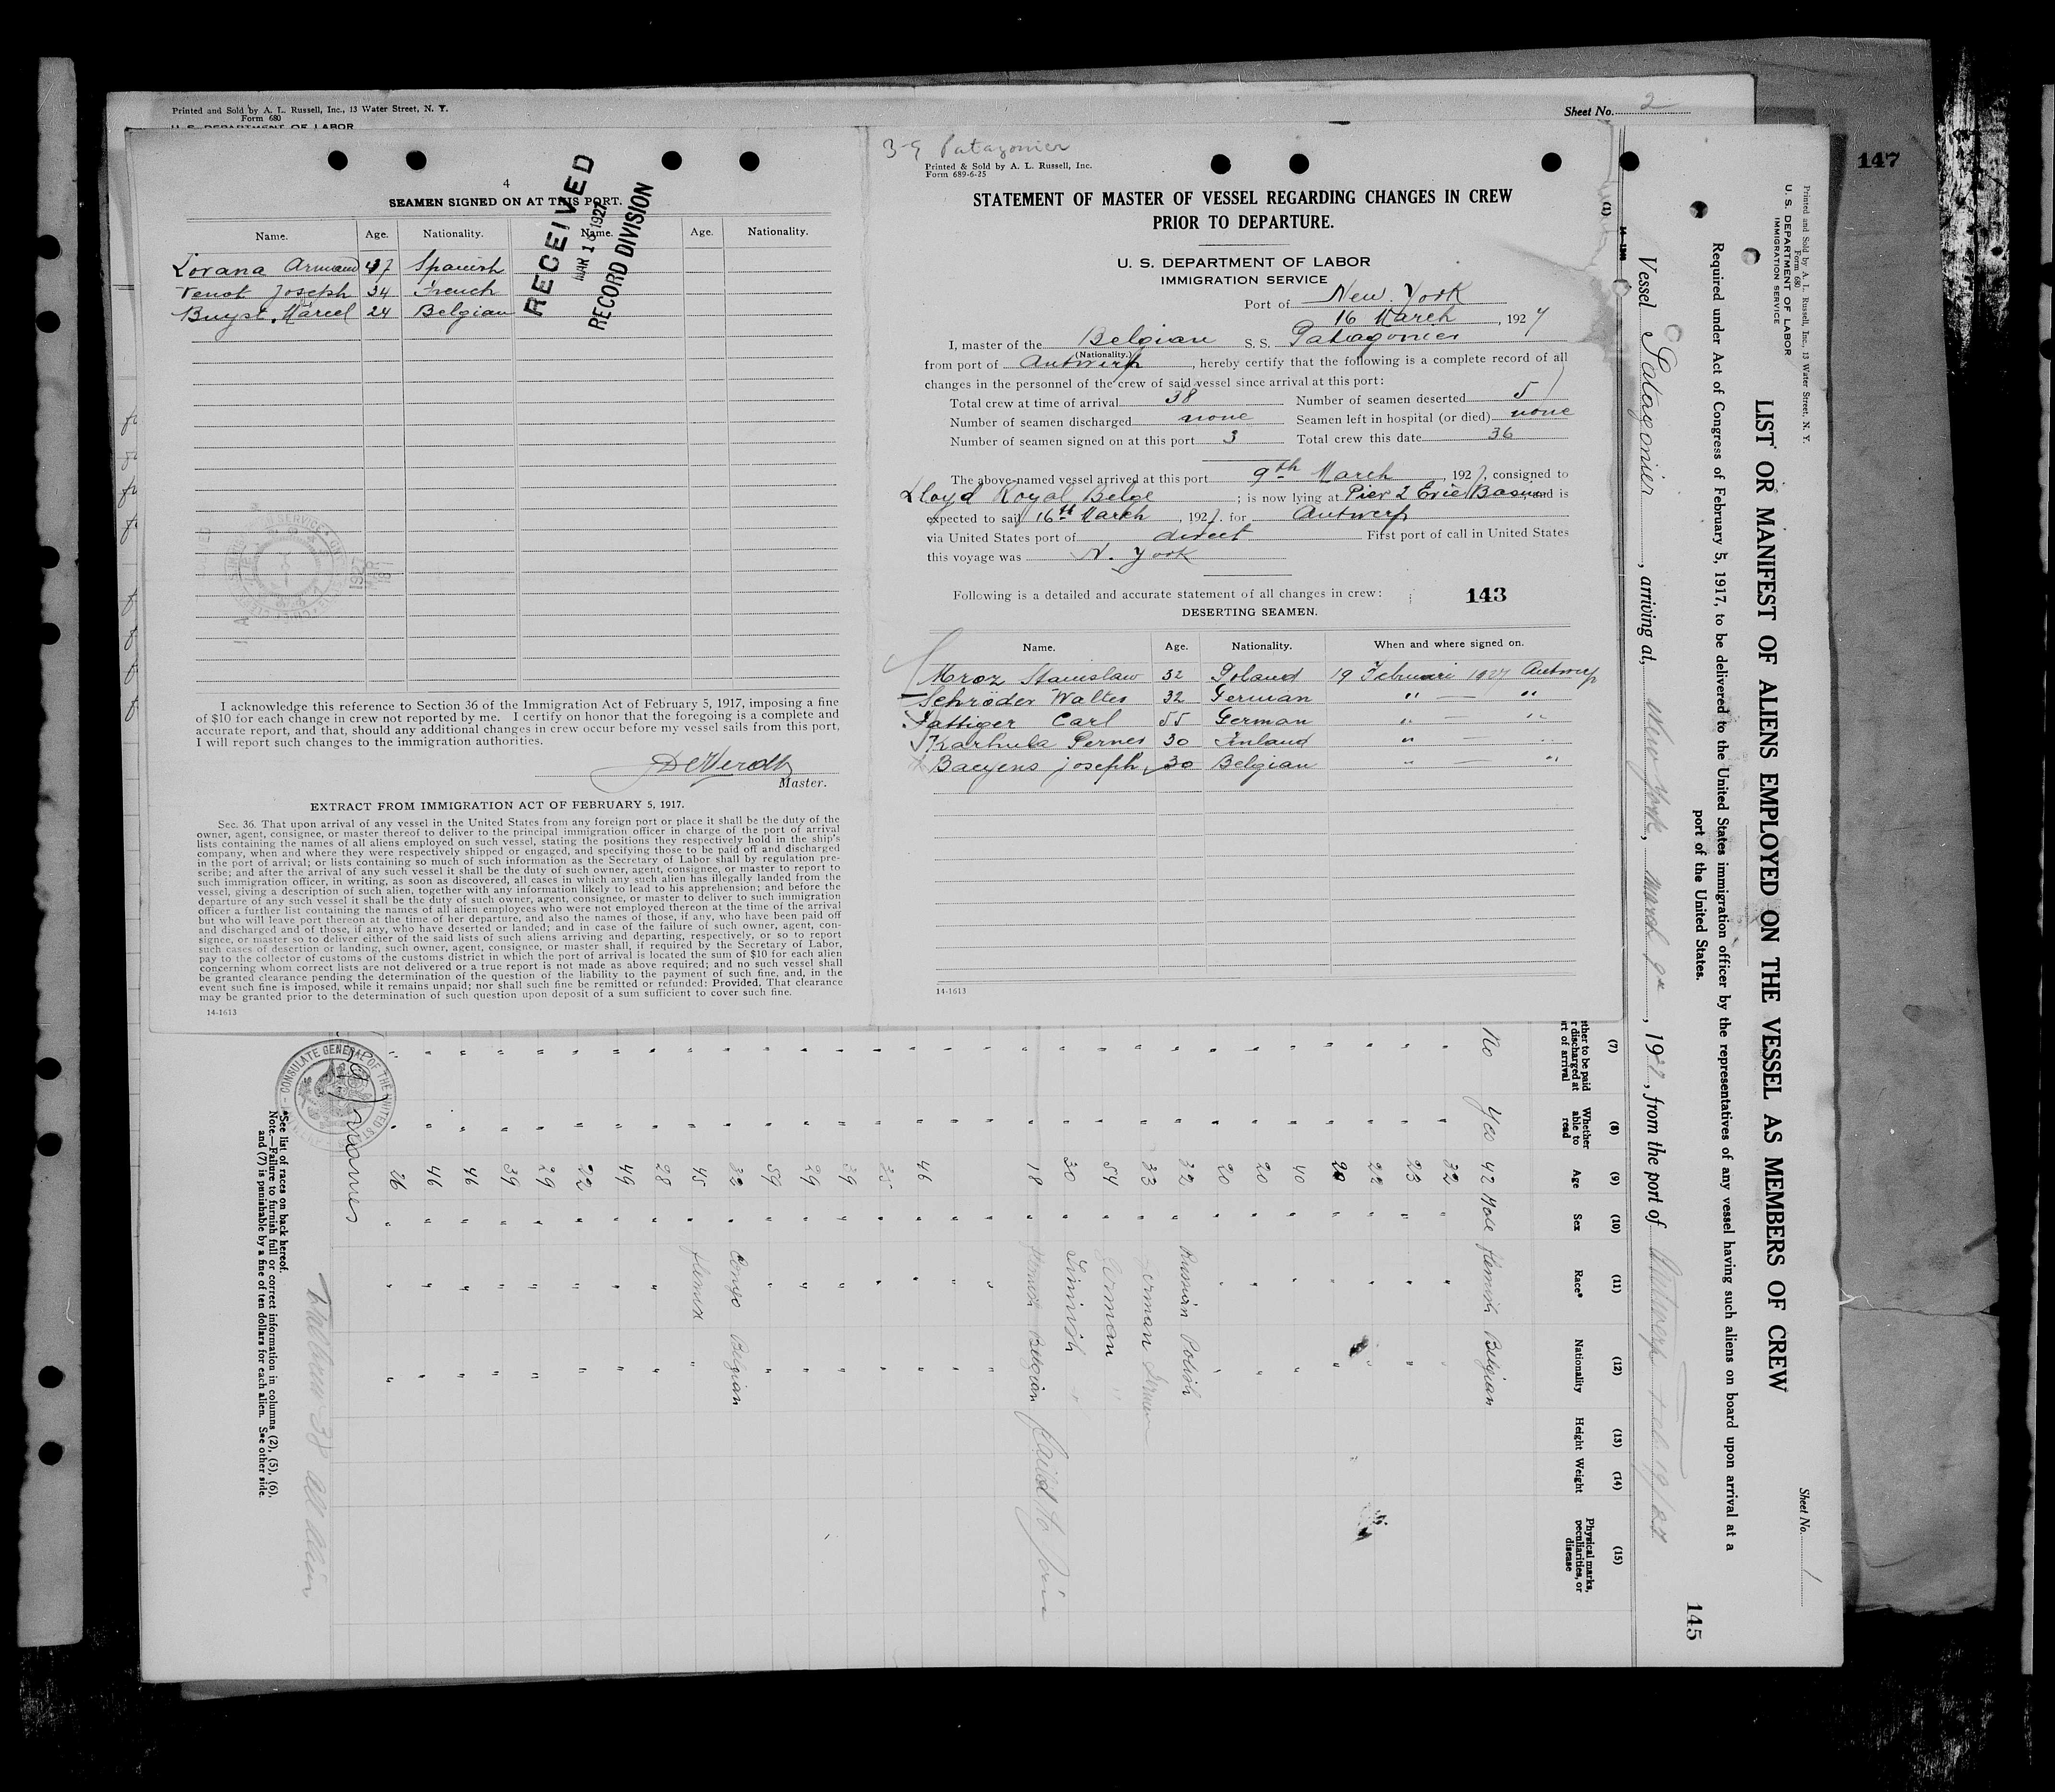 Printed and Sold by A. L. Russell, Inc., 13 Water Street, N. Y.
Form 680
U. S. DEPARTMENT OF LABOR
Sheet No. 2
147
4
SEAMEN SIGNED ON AT THIS PORT.
RECEIVED
MAR 16 1927
RECORD DIVISION
Name. Age. Nationality. Name. Age. Nationality.
Lorana Armand 47 Spanish
Venot Joseph 34 French
Buyst. Marcel 24 Belgian
I acknowledge this reference to Section 36 of the Immigration Act of February 5, 1917, imposing a fine
of $10 for each change in crew not reported by me. I certify on honor that the foregoing is a complete and
accurate report, and that, should any additional changes in crew occur before my vessel sails from this port,
I will report such changes to the immigration authorities.
Master.
EXTRACT FROM IMMIGRATION ACT OF FEBRUARY 5, 1917.
Sec. 36. That upon arrival of any vessel in the United States from any foreign port or place it shall be the duty of the
owner, agent, consignee, or master thereof to deliver to the principal immigration officer in charge of the port of arrival
lists containing the names of all aliens employed on such vessel, stating the positions they respectively hold in the ship's
company, when and where they were respectively shipped or engaged, and specifying those to be paid off and discharged
in the port of arrival; or lists containing so much of such information as the Secretary of Labor shall by regulation pre-
scribe; and after the arrival of any such vessel it shall be the duty of such owner, agent, consignee, or master to report to
such immigration officer, in writing, as soon as discovered, all cases in which any such alien has illegally landed from the
vessel, giving a description of such alien, together with any information likely to lead to his apprehension; and before the
departure of any such vessel it shall be the duty of such owner, agent, consignee, or master to deliver to such immigration
officer a further list containing the names of all alien employees who were not employed thereon at the time of the arrival
but who will leave port thereon at the time of her departure, and also the names of those, if any, who have been paid off
and discharged and of those, if any, who have deserted or landed; and in case of the failure of such owner, agent, con-
signee, or master so to deliver either of the said lists of such aliens arriving and departing, respectively, or so to report
such cases of desertion or landing, such owner, agent, consignee, or master shall, if required by the Secretary of Labor,
pay to the collector of customs of the customs district in which the port of arrival is located the sum of $10 for each alien
concerning whom correct lists are not delivered or a true report is not made as above required; and no such vessel shall
be granted clearance pending the determination of the question of the liability to the payment of such fine, and, in the
event such fine is imposed, while it remains unpaid; nor shall such fine be remitted or refunded: Provided. That clearance
may be granted prior to the determination of such question upon deposit of a sum sufficient to cover such fine.
14-1613
3-9 Patagonier
Printed & Sold by A. L. Russell, Inc.
Form 689-6-25
STATEMENT OF MASTER OF VESSEL REGARDING CHANGES IN CREW
PRIOR TO DEPARTURE.
U. S. DEPARTMENT OF LABOR
IMMIGRATION SERVICE
Port of New York
16 March, 1927
I, master of the Belgian S. S. Patagonier
(Nationality.)
from port of Antwerp, hereby certify that the following is a complete record of all
changes in the personnel of the crew of said vessel since arrival at this port:
Total crew at time of arrival 38 Number of seamen deserted 5
Number of seamen discharged none Seamen left in hospital (or died) none
Number of seamen signed on at this port 3 Total crew this date 36
The above-named vessel arrived at this port 9th March, 1927, consigned to
Lloyd Royal Belge; is now lying at Pier 2 Erie Basin and is
expected to sail 16th March, 1927. for Antwerp
via United States port of direct First port of call in United States
this voyage was N. York
Following is a detailed and accurate statement of all changes in crew: 143
DESERTING SEAMEN.
Name. Age. Nationality. When and where signed on.
Mroz Stanislaw 32 Poland 19 Februari 1927 Antwerp
Schröder Walter 32 German " — "
Fattiger Carl 55 German " — "
Karhula Pernes 30 Finland " — "
Baeyens joseph 30 Belgian " — "
14-1613
Printed and Sold by A. L. Russell, Inc., 13 Water Street, N. Y.
Form 680
U. S. DEPARTMENT OF LABOR
IMMIGRATION SERVICE
Sheet No. 1
LIST OR MANIFEST OF ALIENS EMPLOYED ON THE VESSEL AS MEMBERS OF CREW
Required under Act of Congress of February 5, 1917, to be delivered to the United States immigration officer by the representatives of any vessel having such aliens on board upon arrival at a
port of the United States.
145
Vessel Patagonier, arriving at New York, March 9th, 1927, from the port of Antwerp Feb. 19/27
(1) (7) (8) (9) (10) (11) (12) (13) (14) (15)
ther to be paid
r discharged at
rt of arrival
Whether
able to
read
Age Sex Race* Nationality Height Weight
Physical marks,
peculiarities, or
disease
No Yes 42 Male flemish Belgian
" " 32 " " "
" " 23 " " "
" " 22 " " "
" " 20 " " "
" " 40 " " "
" " 20 " " "
" " 20 " " "
" " 32 " Russian Polish
" " 33 " German German
" " 54 " German "
" " 30 " Finnish "
" " 18 " Belgian failed to join
" " 46 " " "
" " 35 " " "
" " 39 " " "
" " 29 " " "
" " 59 " " "
" " 32 " Congo Belgian
" " 45 " flemish "
" " 28 " " "
" " 49 " " "
" " 22 " " "
" " 29 " " "
" " 39 " " "
" " 46 " " "
" " 46 " " "
" " 26 " " "
names
CONSULATE GENERAL OF THE UNITED STA
38 all
*See list of races on back hereof.
Note.—Failure to furnish full or correct information in columns (2), (5), (6),
and (7) is punishable by a fine of ten dollars for each alien. See other side.